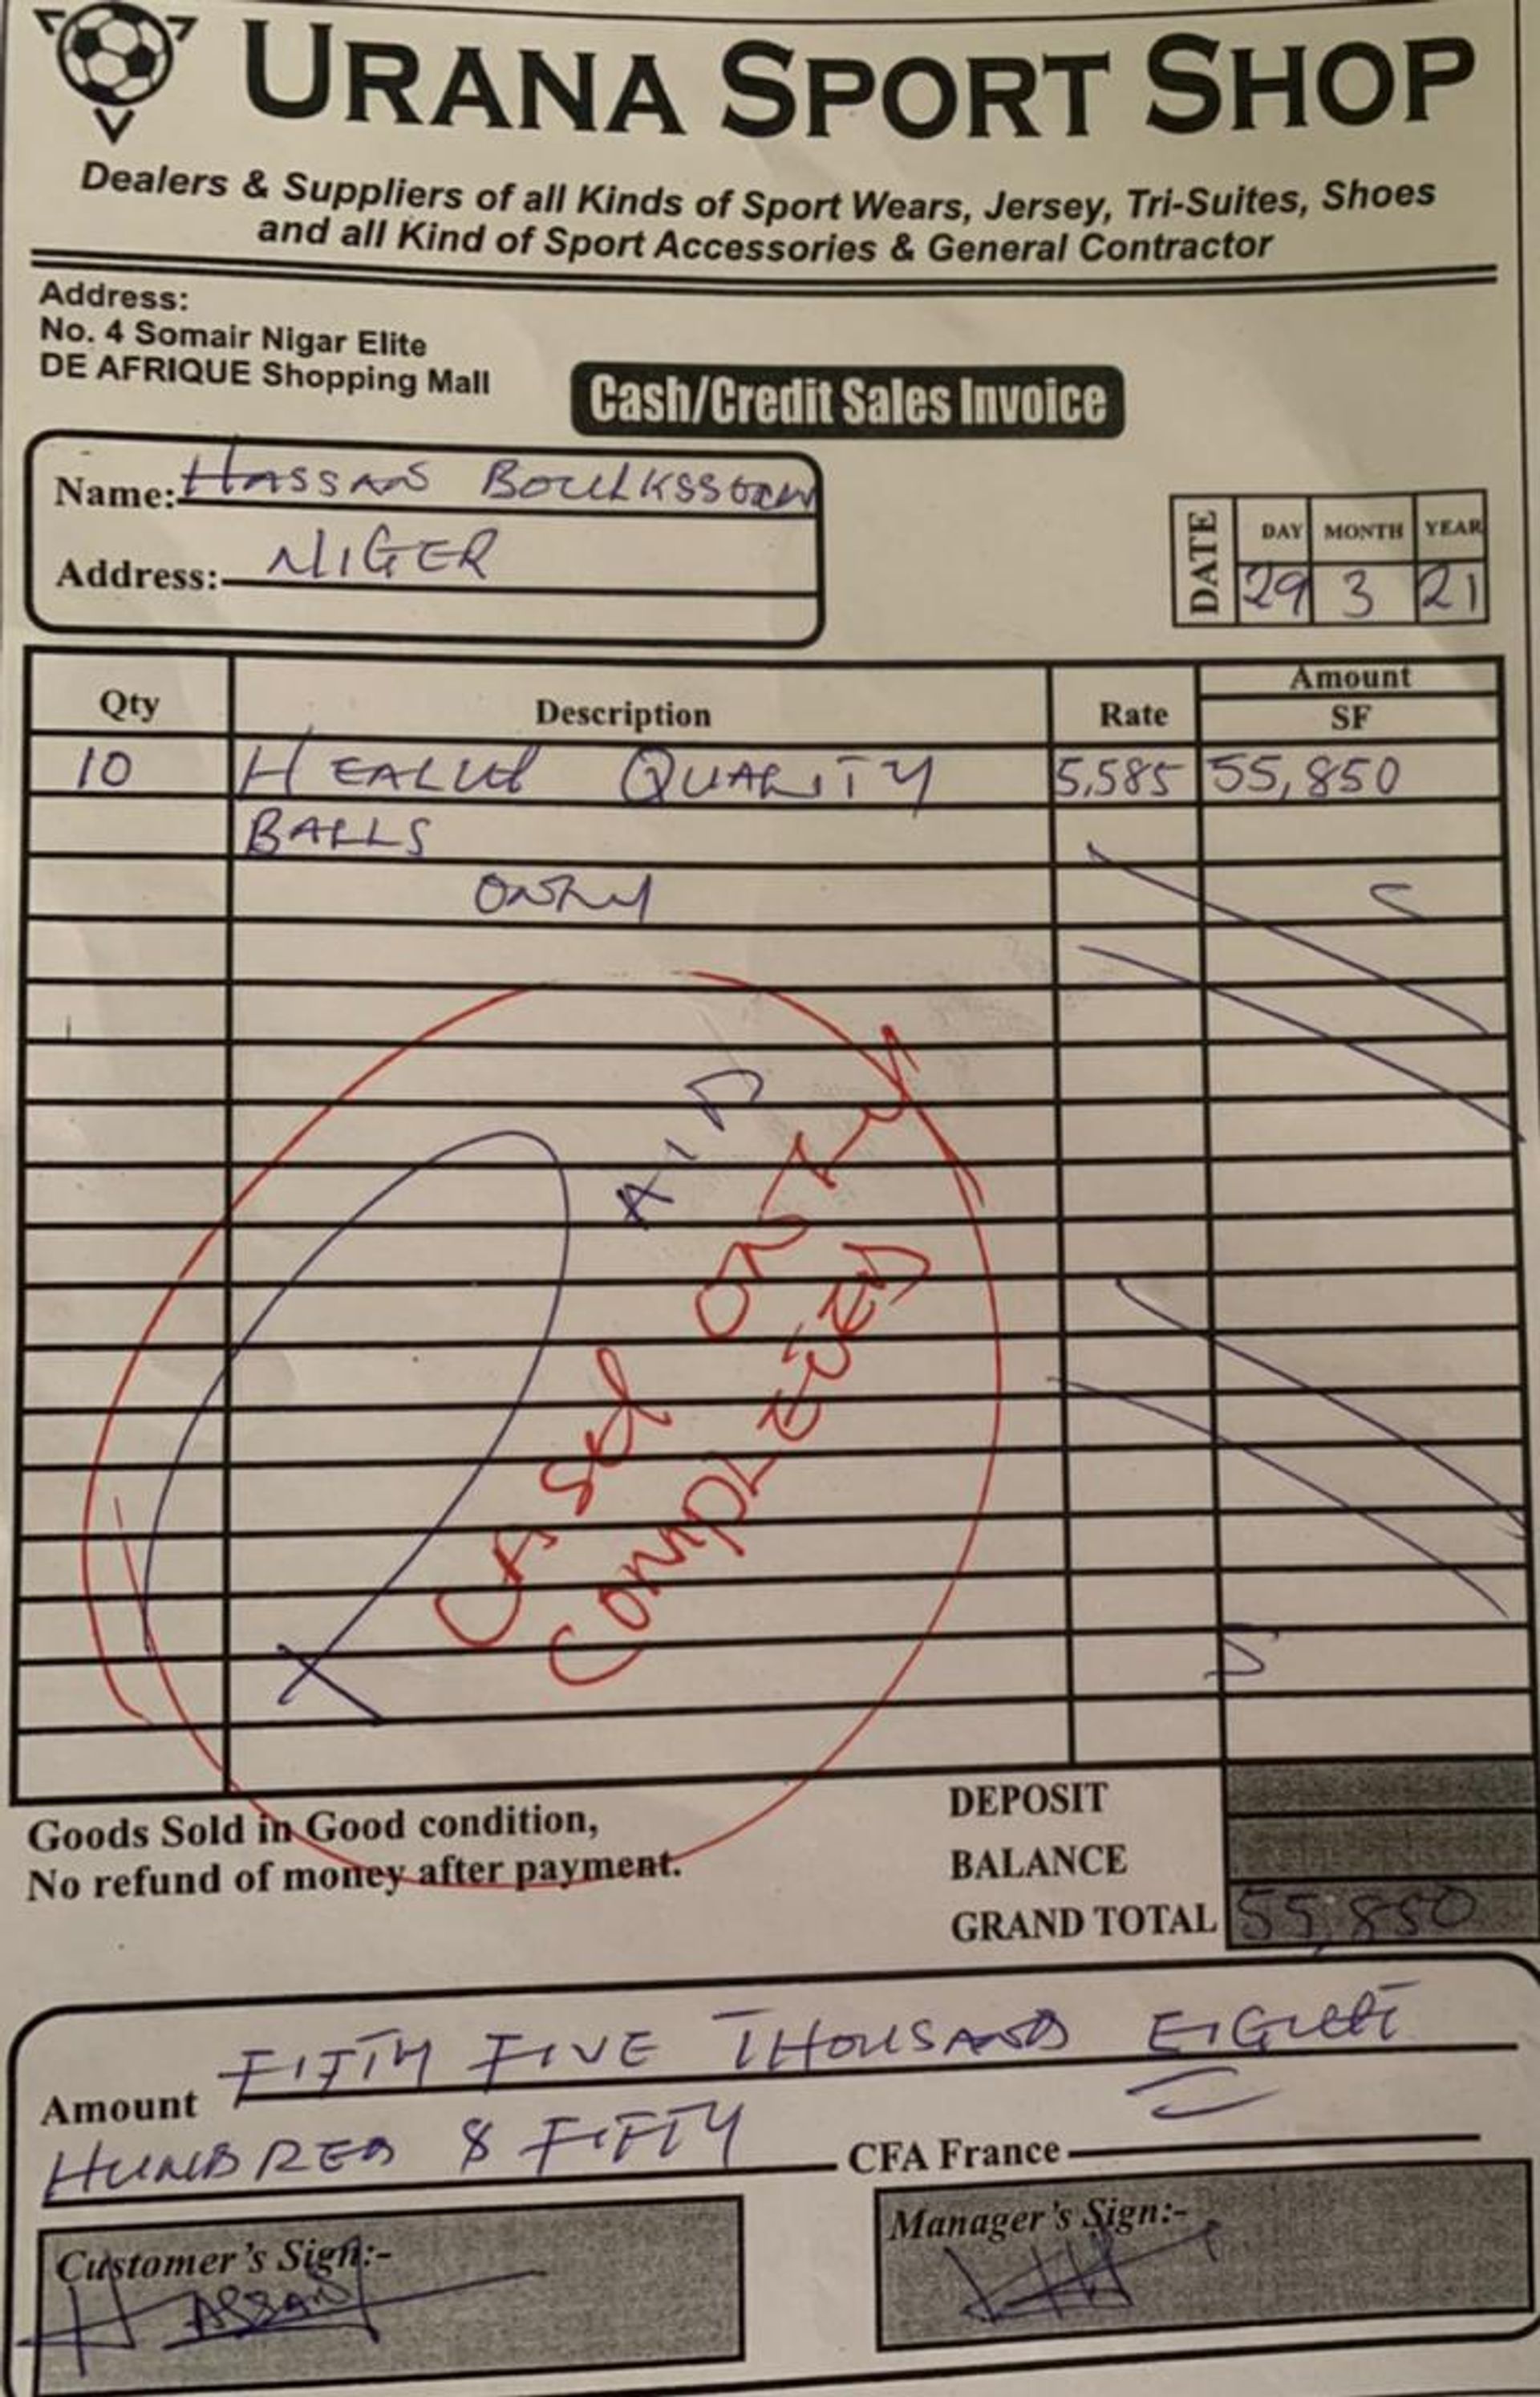 URANA SPORT SHOP
Dealers & Suppliers of all Kinds of Sport Wears, Jersey, Tri-Suites, Shoes
and all Kind of Sport Accessories & General Contractor
Address:
No. 4 Somair Nigar Elite
DE AFRIQUE Shopping Mall
Cash/Credit Sales Invoice
Name: HASSAN
Address: NIGER
DATE DAY MONTH YEAR
29 3 21
Qty Description Rate Amount
SF
10 QUALITY 5,585 55,850
BALLS
ONLY
PAID
CASH ONLY
COMPLETED
Goods Sold in Good condition,
No refund of money after payment.
DEPOSIT
BALANCE
GRAND TOTAL 55,850
Amount FIFTY FIVE THOUSAND EIGHT
HUNDRED & FIFTY CFA France
Customer's Sign:-
HASSAN
Manager's Sign:-